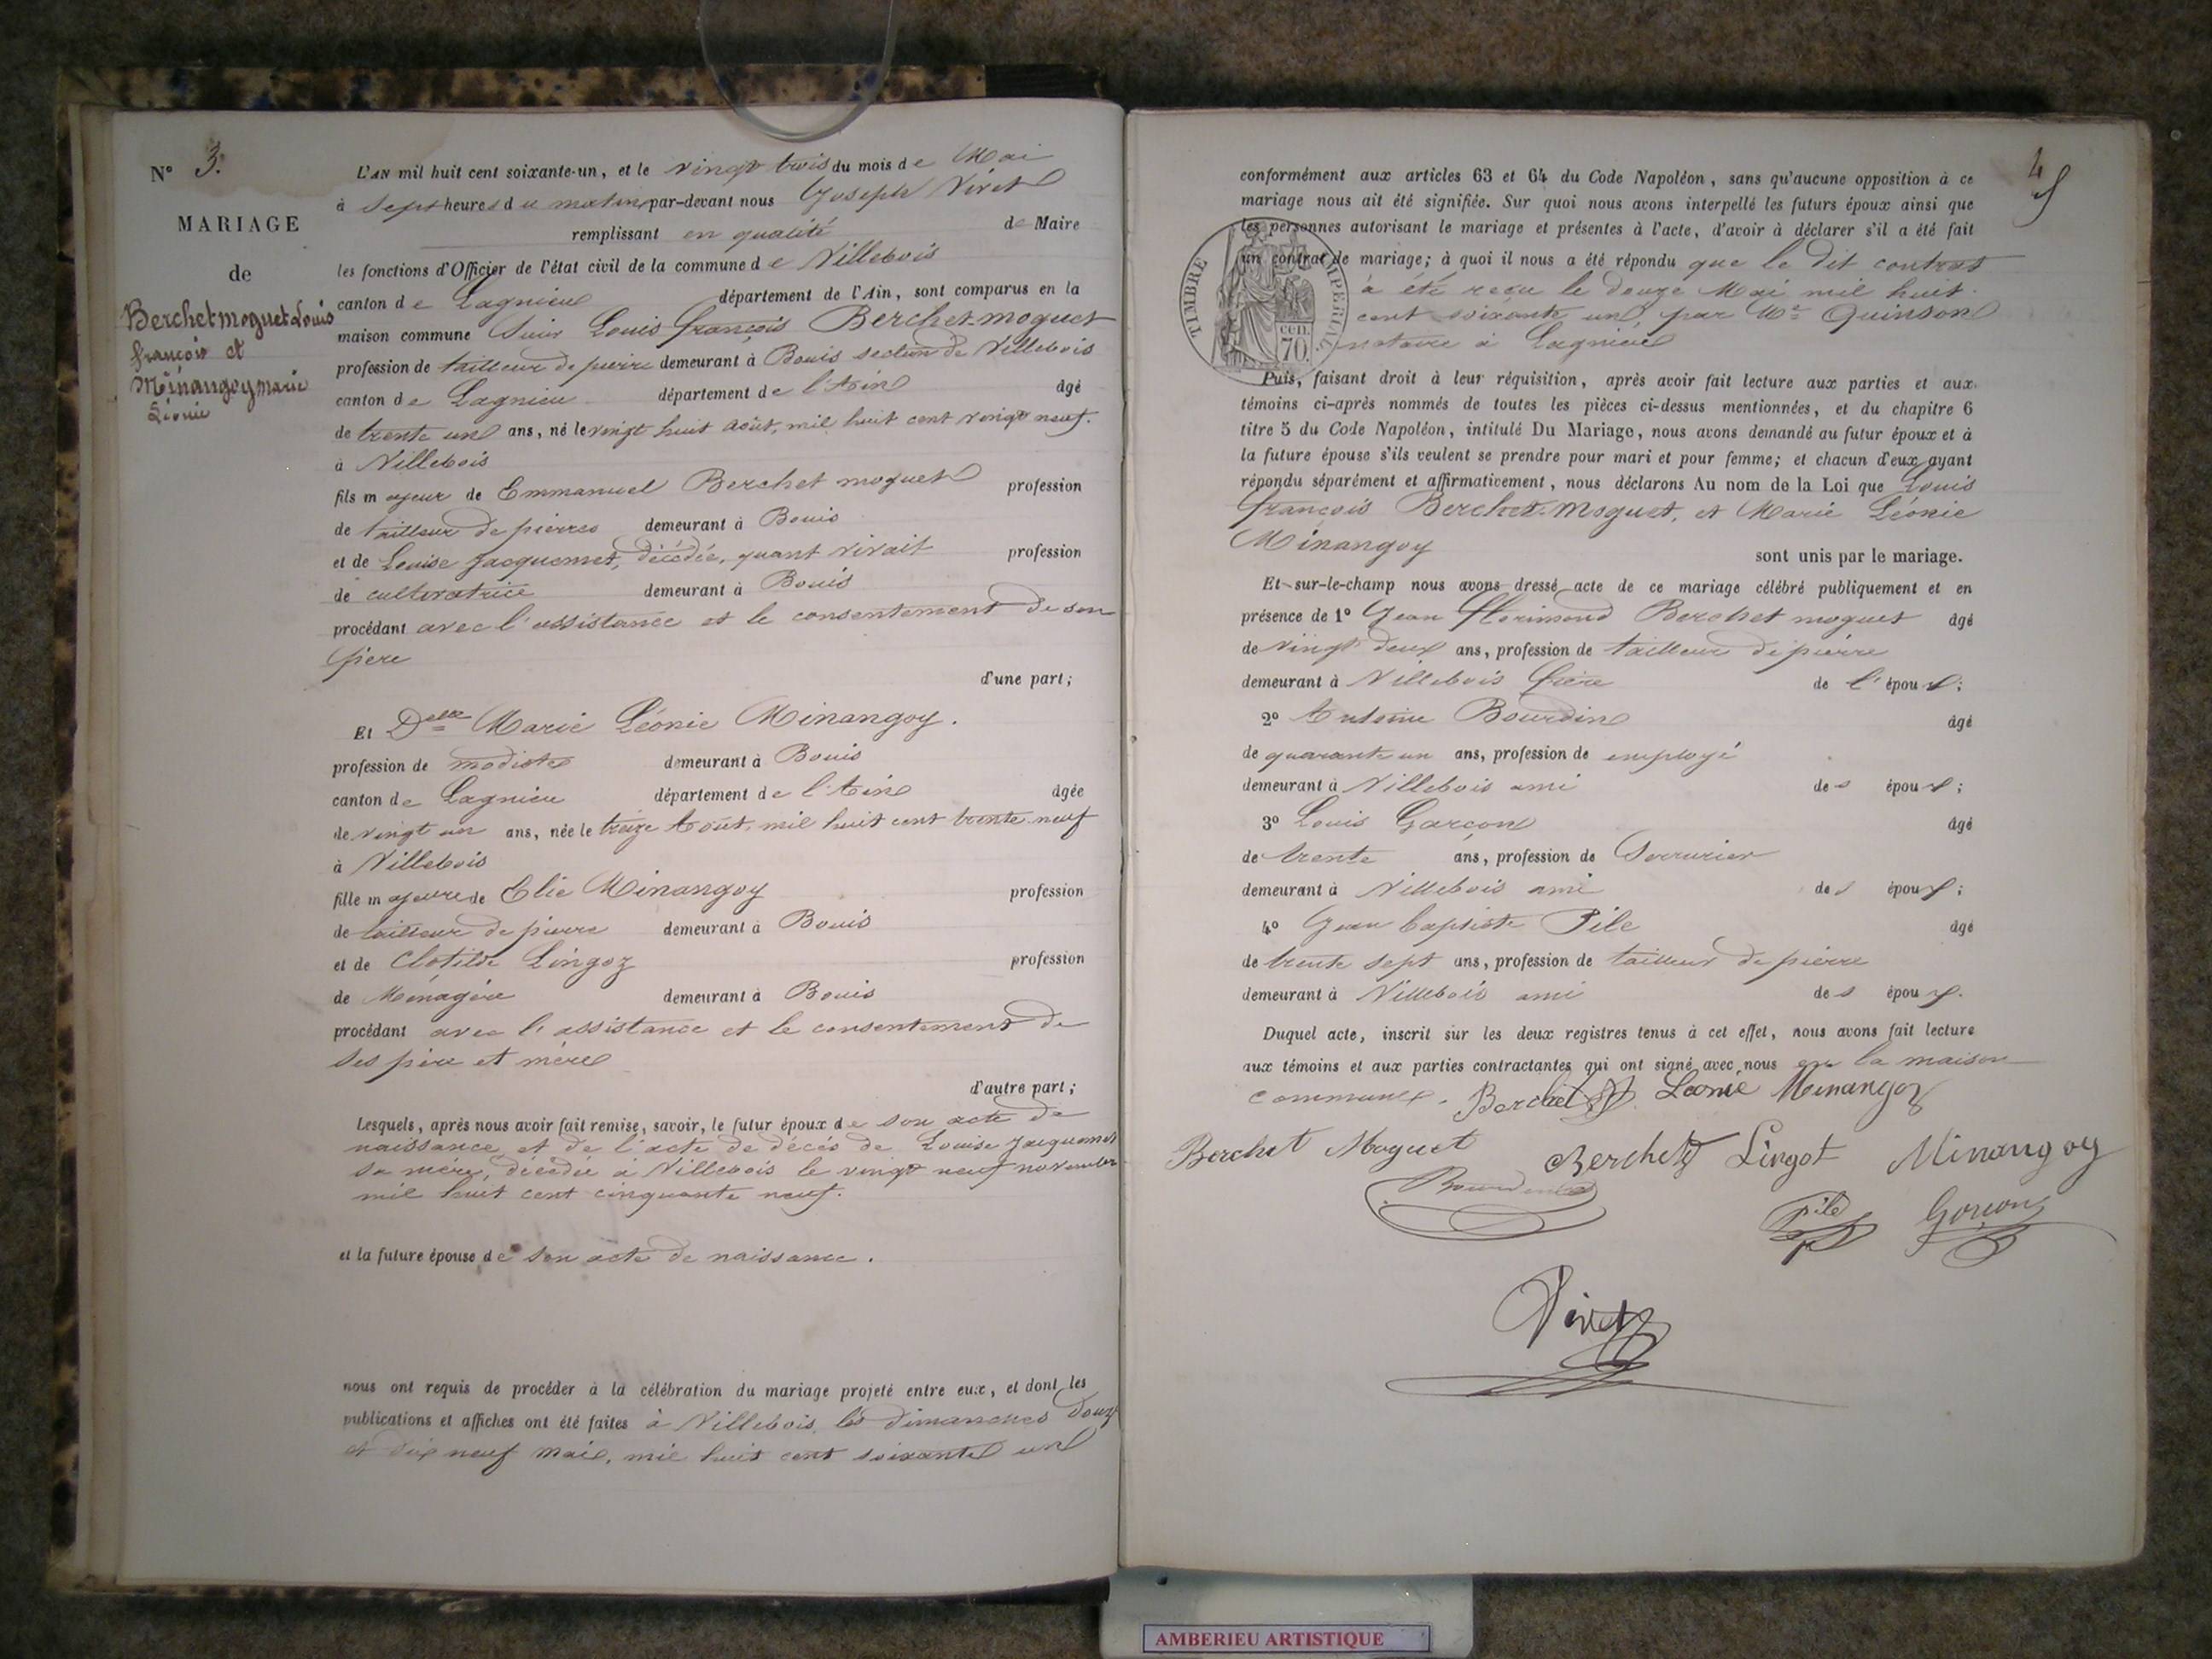 N° 3.
MARIAGE
de
Berchet moguet Louis
françois et
Minangoy marie
Léonie
L'AN mil huit cent soixante-un, et le vingt trois du mois de Mai
à sept heures du matin par-devant nous Joseph Viret
remplissant en qualité de Maire
les fonctions d'Officier de l'état civil de la commune de Villebois
canton de Lagnieu département de l'Ain, sont comparus en la
maison commune Sieur Louis françois Berchet-moguet
profession de tailleur de pierre demeurant à Bouis section de Villebois
canton de Lagnieu département de l'Ain âgé
de trente un ans, né le vingt huit août, mil huit cent vingt neuf.
à Villebois
fils majeur de Emmanuel Berchet moguet profession
de tailleur de pierres demeurant à Bouis
et de Louise Jacquemet, décédée, quant vivait profession
de cultivatrice demeurant à Bouis
procédant avec l'assistance et le consentement de son
père
d'une part;
Et Delle Marie Léonie Minangoy.
profession de modiste demeurant à Bouis
canton de Lagnieu département de l'Ain âgée
de vingt un ans, née le treize Août, mil huit cent trente neuf
à Villebois
fille majeure de Elie Minangoy profession
de tailleur de pierre demeurant à Bouis
et de Clotilde Lingoz profession
de Ménagère demeurant à Bouis
procédant avec l'assistance et le consentement de
ses père et mère
d'autre part;
Lesquels, après nous avoir fait remise, savoir, le futur époux de son acte de
naissance et de l'acte de décés de Louise Jacquemet
sa mère, décédée à Villebois le vingt neuf novembre
mil huit cent cinquante neuf.
et la future épouse de son acte de naissance.
nous ont requis de procéder à la célébration du mariage projeté entre eux, et dont les
publications et affiches ont été faites à Villebois, les dimanches douze
et dix neuf mai, mil huit cent soixante un
4
conformément aux articles 63 et 64 du Code Napoléon, sans qu'aucune opposition à ce
mariage nous ait été signifiée. Sur quoi nous avons interpellé les futurs époux ainsi que
les personnes autorisant le mariage et présentes à l'acte, d'avoir à déclarer s'il a été fait
un contrat de mariage; à quoi il nous a été répondu que le dit contrat
à été reçu le douze Mai mil huit
cent soixante un, par Me Quinson
notaire à Lagnieu
TIMBRE IMPERIAL
cen.
70.
Puis, faisant droit à leur réquisition, après avoir fait lecture aux parties et aux
témoins ci-après nommés de toutes les pièces ci-dessus mentionnées, et du chapitre 6
titre 5 du Code Napoléon, intitulé Du Mariage, nous avons demandé au futur époux et à
la future épouse s'ils veulent se prendre pour mari et pour femme; et chacun d'eux ayant
répondu séparément et affirmativement, nous déclarons Au nom de la Loi que Louis
françois Berchet-Moguet, et Marie Léonie
Minangoy sont unis par le mariage.
Et sur-le-champ nous avons dressé acte de ce mariage célébré publiquement et en
présence de 1° Jean Florimond Berchet moguet âgé
de vingt deux ans, profession de tailleur de pierre
demeurant à Villebois frère de l'époux;
2° Antoine Bourdin âgé
de quarante un ans, profession de employé
demeurant à Villebois ami des époux;
3° Louis Garçon âgé
de trente ans, profession de Serrurier
demeurant à Villebois ami des époux;
4° Jean baptiste Pile âgé
de trente sept ans, profession de tailleur de pierre
demeurant à Villebois ami des époux.
Duquel acte, inscrit sur les deux registres tenus à cet effet, nous avons fait lecture
aux témoins et aux parties contractantes qui ont signé avec nous en la maison
commune. Berchet Léonie Minangoy
Berchet Moguet Berchet Lingot Minangoy
Bourdin Pile Garçon
Viret
AMBERIEU ARTISTIQUE